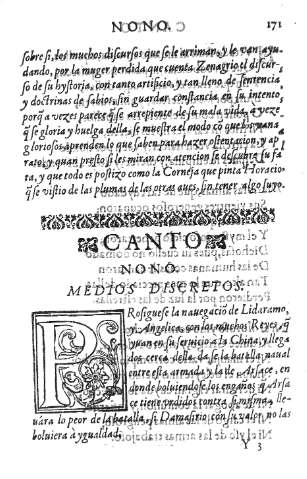 NONO. 171
sobre si, los muchos discursos que se le arriman, y le van ayu-
dando, por la muger perdida que cuenta Zenagrio el discur-
so de su hystoria, con tanto artificio, y tan lleno de sentencia
y doctrinas de sabios, sin guardar constancia en su intento,
porq̃ a vezes parece q̃ se arrepiente de su mala vida, a veze
q̃ se gloria y huelga della, se muestra el modo cõ que los vana
gloriosos aprenden lo que saben para hazer ostentacion, y ap
rato, y quan presto si les miran con atencion se descubre su fa
ta, y que todo es postizo como la Corneja que pinta Horacio
q̃ se vistio de las plumas de las otras aues, sin tener algo suyo.
CANTO
NONO.
MEDIOS DISCRETOS.
PRosiguese la nauegaciõ de Lidaramo,
y Angelica, con los muchos Reyes, q̃
yuan en su seruicio a la China, y llega
dos cerca della, da se la batalla naual
entre esta armada y la de Arsace, en
donde boluiendose los engaños q̃ Arsa
ce tiene vrdidos contra si misma, lle-
uára lo peor de la batalla, si Damasirio con su valor, no las
boluiera à ygualdad.
Y 3